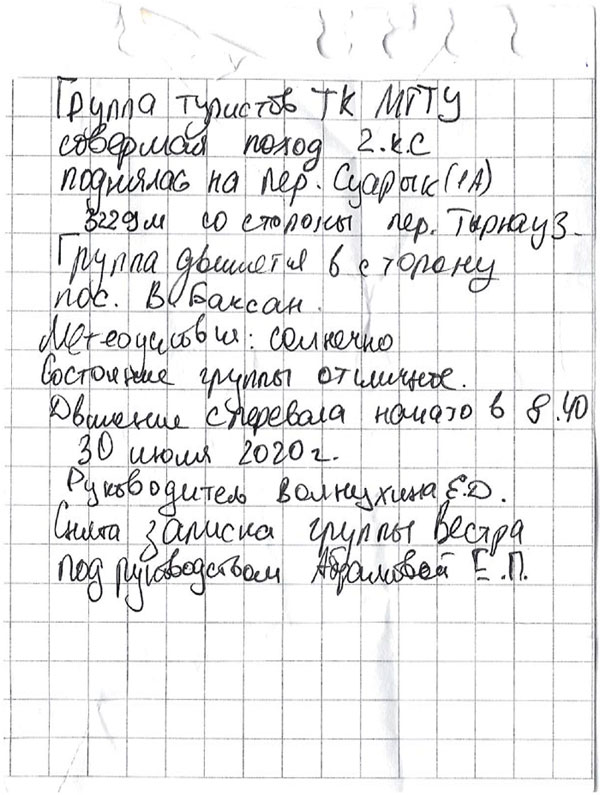 Группа туристов ТК МГТУ
совершая поход 2.к.с
поднялась на пер. Суарык (1А)
3229м со стороны пер. Тырнауз.
Группа движется в сторону
пос. В. Баксан.
Метеоусловия: солнечно
Состояние группы отличное.
Движение с перевала начато в 8.40
30 июля 2020 г.
Руководитель Волнухина Е.Д.
Снята записка группы Вестра
под руководством Абрамовой Е.П.